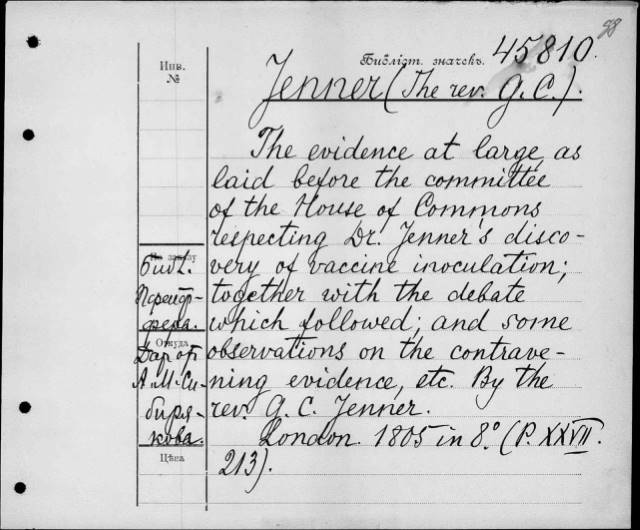 98
Библіот. значекъ. 45810.
Инв.
№
Jenner (The rev. G. C.).
The evidence at large, as
laid before the committee
of the House of Commons
respecting Dr. Jenner's disco-
very of vaccine inoculation;
together with the debate
which followed; and some
observations on the contrave-
ning evidence, etc. By the
rev. G. C. Jenner.
London. 1805 in 8.° (P. XXVII.
213).
Библ.
Откуда
Дар от
А. М. Си-
биря-
кова.
Цѣна